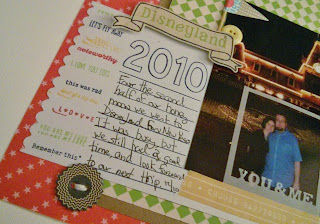 Disneyland
LET'S PIT
noteworthy
I LOVE YOU
this was rad
love
YOU AND ME
Remember this
2010
For the second
half of our honey-
moon we went to
Disneyland for New Years
It was busy, but
we still had a good
time, and look forward
to our next trip
YOU & ME